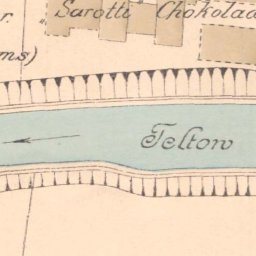 Sarotti Chokolad
r.
ms)
Teltow